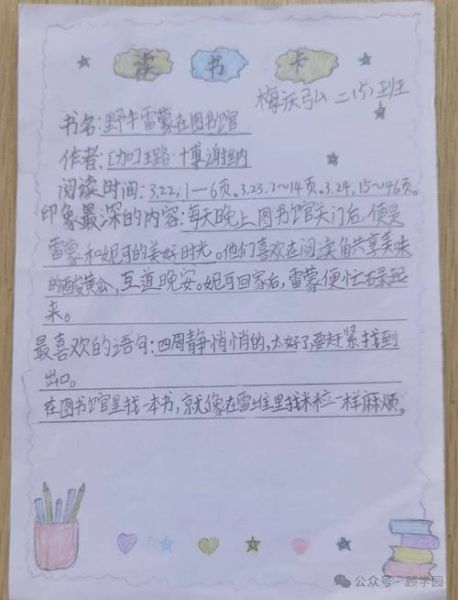 读 书 卡
梅沃弘 二(5)班
书名:野牛雷蒙在图书馆
作者:[加]珏路·博谢纳
阅读时间:3.22,1—6页。3.23,7~14页。3.24,15~46页。
印象最深的内容:每天晚上图书馆关门后,便是
雷蒙和妮可的美好时光。他们喜欢在阅读角共享美味
的酸黄瓜,互道晚安。妮可回家后,雷蒙便忙碌起
来。
最喜欢的语句:四周静悄悄的,太好了要赶紧找到
出口。
在图书馆里找一本书,就像在雪堆里找米粒一样麻烦。
公众号·颜学园